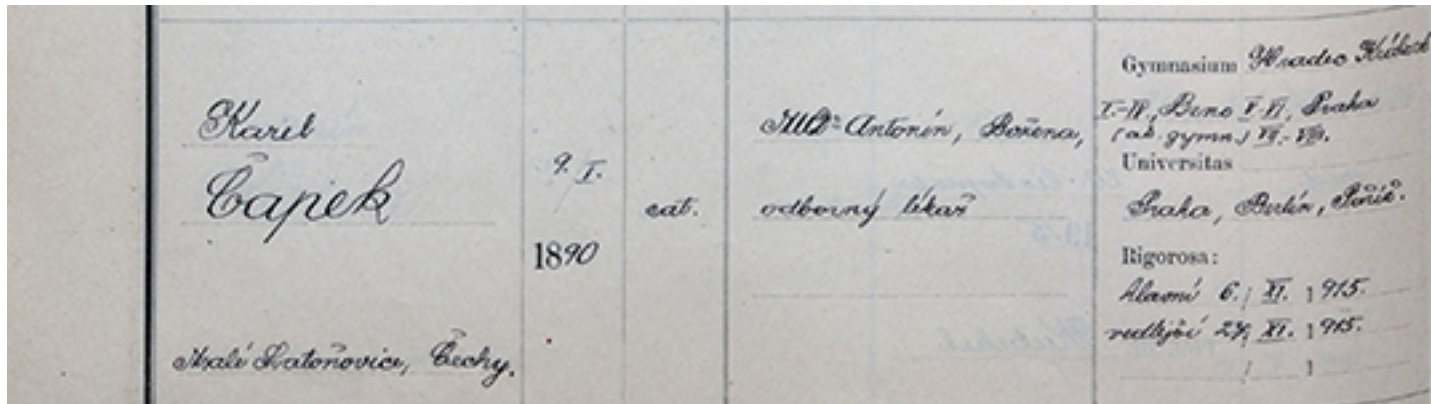 Karel
Čapek
Malé Svatoňovice, Čechy.
9. I.
1890
cat.
MUDr Antonín, Božena,
odborný lékař
Gymnasium Hradec Králové
I.-IV., Brno V-VI, Praha
(ak. gymn.) VII.-VIII.
Universitas
Praha, Berlín, Paříž.
Rigorosa:
hlavní 6. / XI. 1915.
vedlejší / XI. 1915.
/ 1